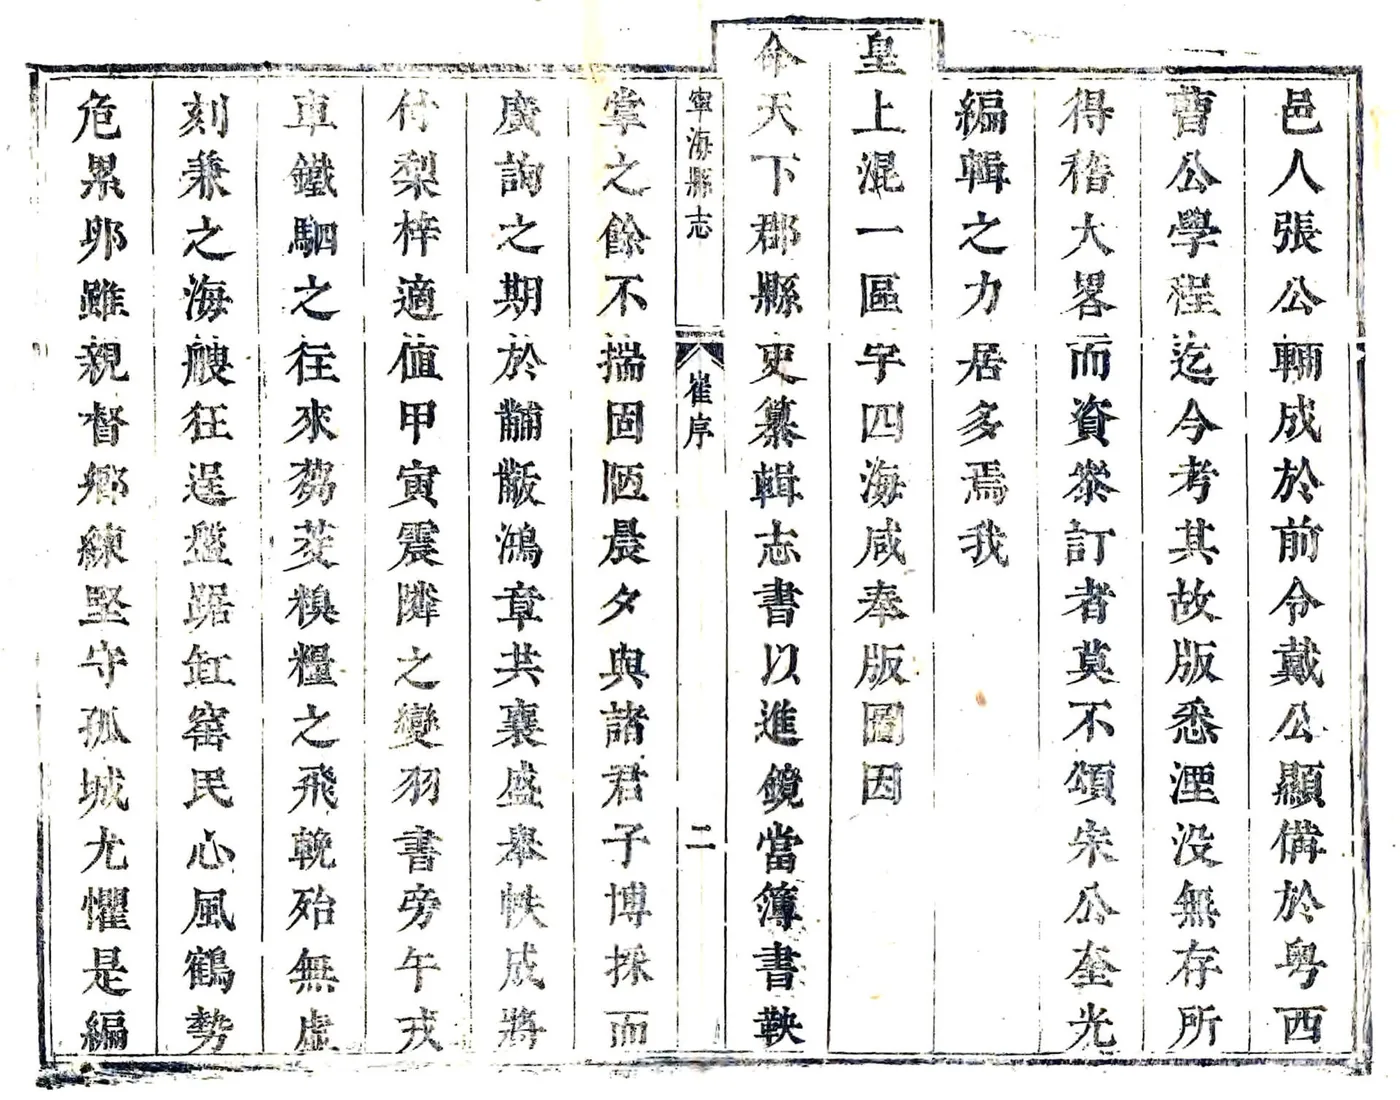 邑人張公輛成於前令戴公顯備於粤西
曹公學程迄今考其故版悉湮没無存所
得稽大畧而資叅訂者莫不頌宋公奎光
編輯之力居多焉我
皇上混一區宇四海咸奉版圖因
命天下郡縣吏纂輯志書以進鏡當簿書鞅
寧海縣志 崔序 二
掌之餘不揣固陋晨夕與諸君子博採而
廣詢之期於黼黻鴻章共襄盛舉帙成將
付梨梓適值甲寅震隣之變羽書旁午戎
車鐵駟之徃來芻茭糗糧之飛輓殆無虛
刻兼之海艘狂逞盤踞缸窰民心風鶴勢
危累卵雖親督鄉練堅守孤城尤懼是編